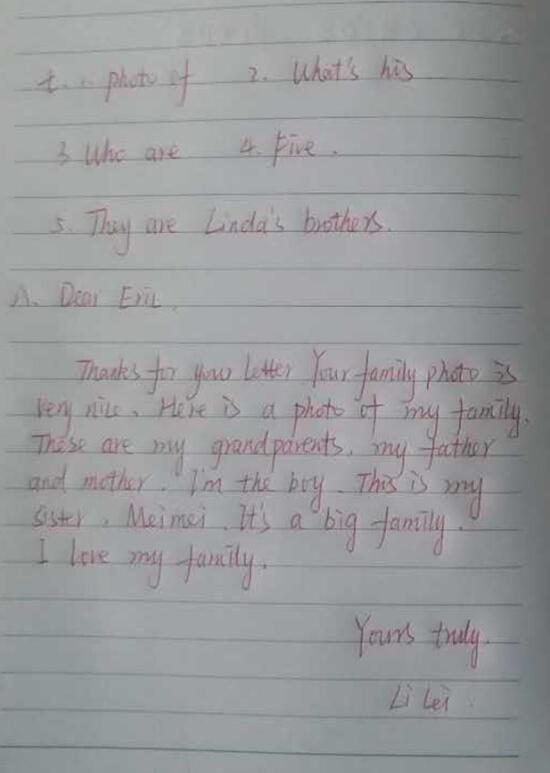 1. a photo of 2. What's his
3 Who are 4. Five.
5. They are Linda's brothers.
八. Dear Eric,
Thanks for your letter Your family photo is
very nice. Here is a photo of my family.
These are my grandparents, my father
and mother. I'm the boy. This is my
sister, Meimei. It's a big family.
I love my family.
Yours truly.
Li Lei.